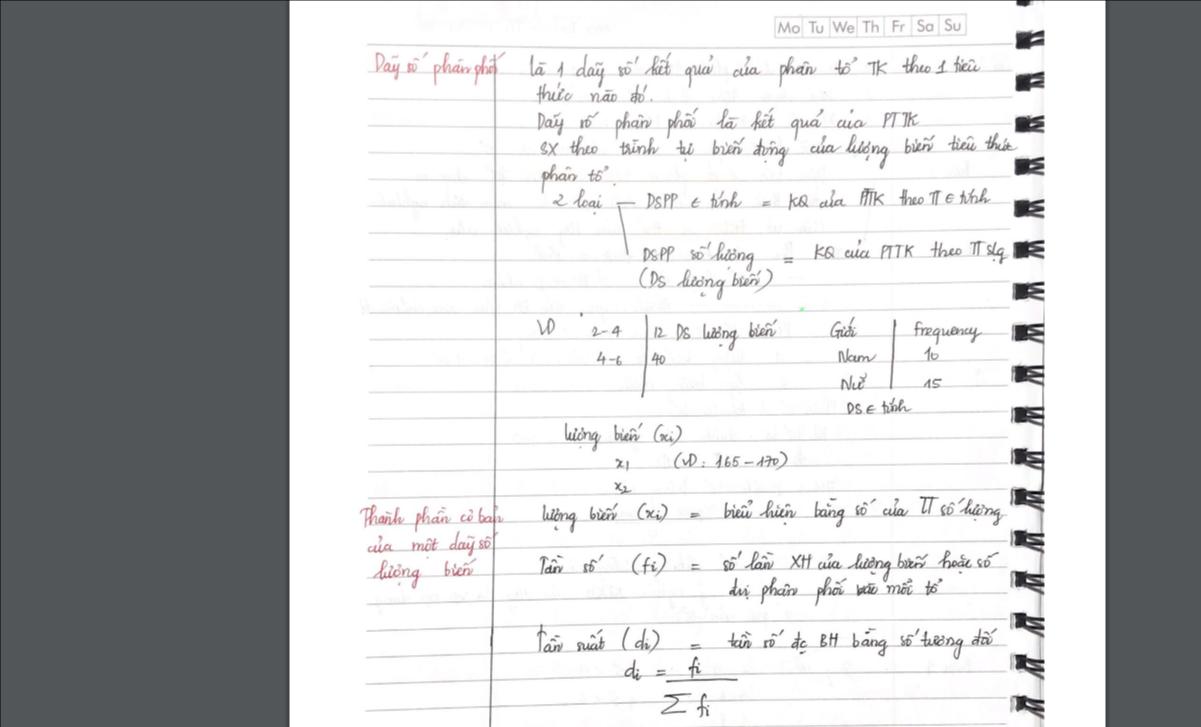 Mo Tu We Th Fr Sa Su
Dãy số phân phối là 1 dãy số kết quả của phân tổ TK theo 1 tiêu
thức nào đó.
Dãy số phân phối là kết quả của PTTK
SX theo trình tự biến động của lượng biến tiêu thức
phân tổ.
2 loại — DSPP ∈ tính = KQ của PTTK theo TT ∈ tính
DSPP số lượng = KQ của PTTK theo TT slg
(DS lượng biến)
VD 2-4 | 12 DS lượng biến Giới | Frequency
4-6 | 40 Nam | 10
Nữ | 15
DS ∈ tính
lượng biến (xi)
x1 (VD: 165-170)
x2
Thành phần cơ bản lượng biến (xi) = biểu hiện bằng số của TT số lượng
của một dãy số
lượng biến Tần số (fi) = số lần XH của lượng biến hoặc số
dvị phân phối vào mỗi tổ
Tần suất (di) = tần số đc BH bằng số tương đối
di = fi
∑ fi